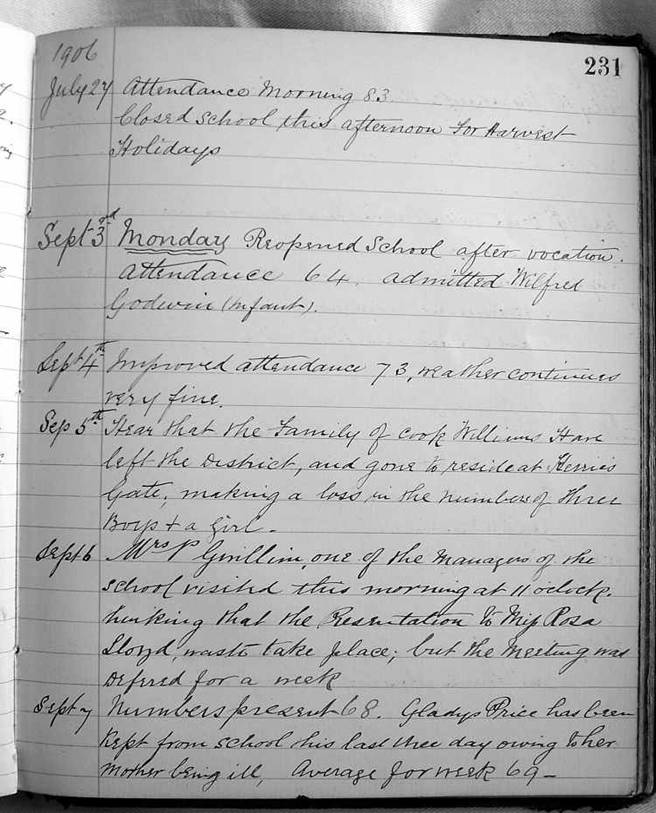 1906
231
July 27 Attendance Morning 83
Closed School this afternoon For Harvest
Holidays
Sept 3rd Monday Reopened School after vocation.
Attendance 64. admitted Wilfred
Godwin (Infant).
Sept 4th Improved attendance 73, weather continues
very fine.
Sep 5th Hear that the Family of Cook Williams Have
left the District, and gone to reside at
Gate, making a loss in the number of three
Boys + a girl.
Sept 6 Mrs P Gwillim, one of the Managers of the
school visited this morning at 11 oclock.
hinking that the Presentation to Miss Rosa
Lloyd, was to take place; but the Meeting was
Deferred for a week
Sept 7 Numbers present 68. Gladys Price has been
Kept from School this last three day owing to her
Mother being ill, Average for week 69 –